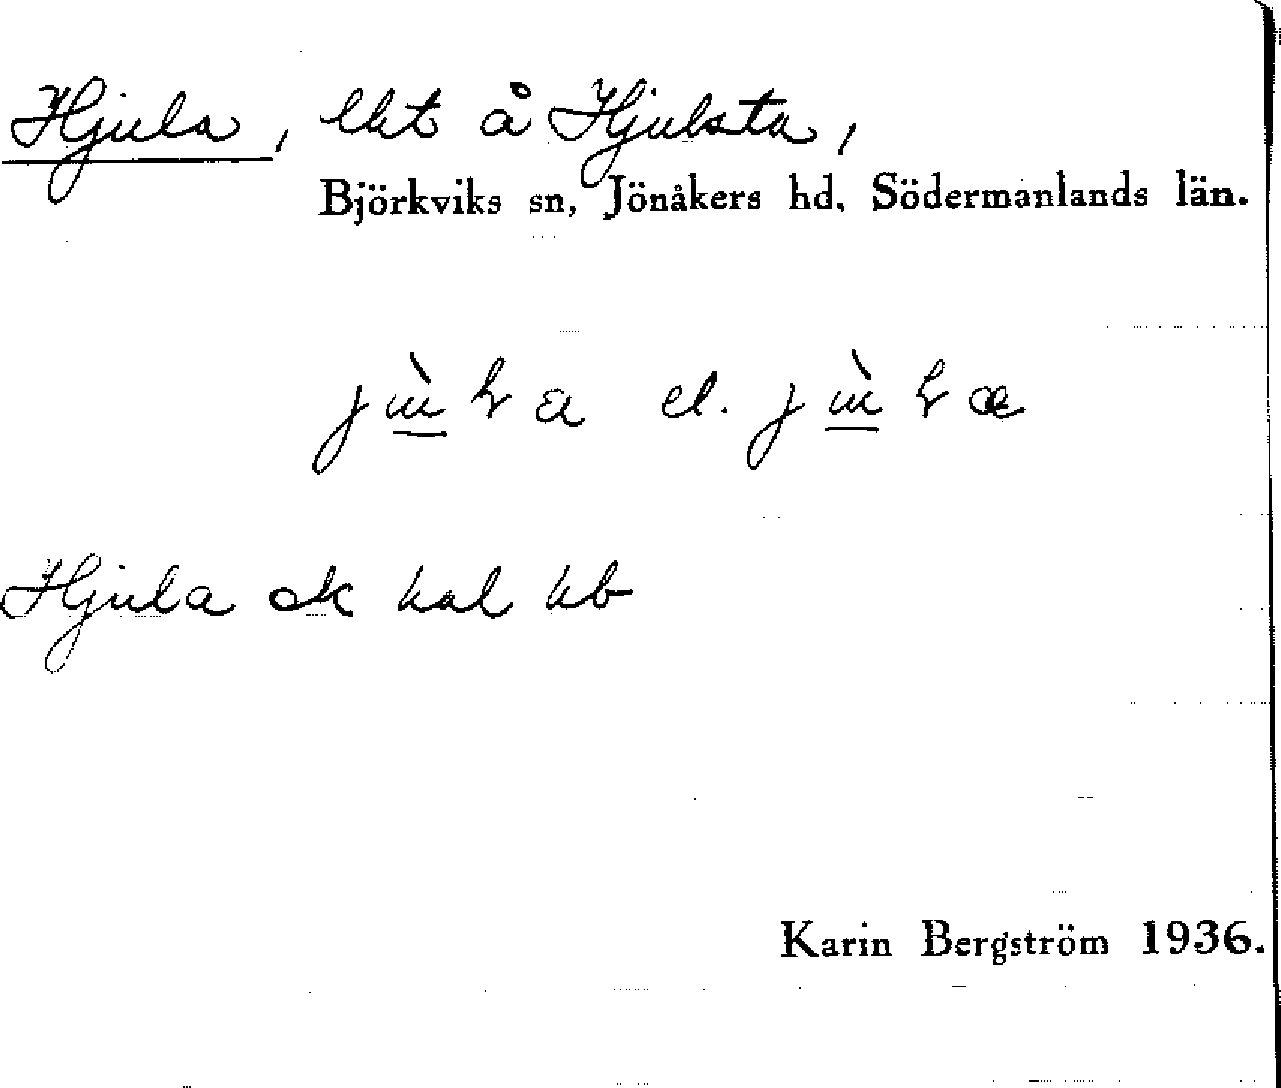 Hjula, lht å Hjulsta,
Björkviks sn, Jönåkers hd, Södermanlands län.
el.
Hjula ek hal kb
Karin Bergström 1936.